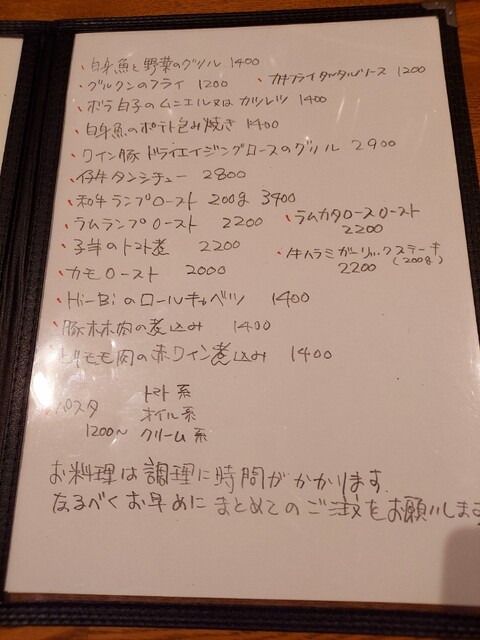 ・白身魚と野菜のグリル 1400
・グルクンのフライ 1200 ・カキフライタルタルソース 1200
・ボラ白子のムニエル又はカツレツ 1400
・白身魚のポテト包み焼き 1400
・ワイン豚ドライエイジングロースのグリル 2900
・仔牛タンシチュー 2800
・和牛ランプロースト 200g 3900
・ラムランプロースト 2200 ・ラムカタロースロースト 2200
・子羊のトマト煮 2200 ・牛ハラミガーリックステーキ (200g) 2200
・カモロースト 2000
・Hi-Biのロールキャベツ 1400
・豚ホホ肉の煮込み 1400
・トリモモ肉の赤ワイン煮込み 1400
・パスタ 1200〜
トマト系
オイル系
クリーム系
お料理は調理に時間がかかります。
なるべくお早めにまとめてのご注文をお願いします